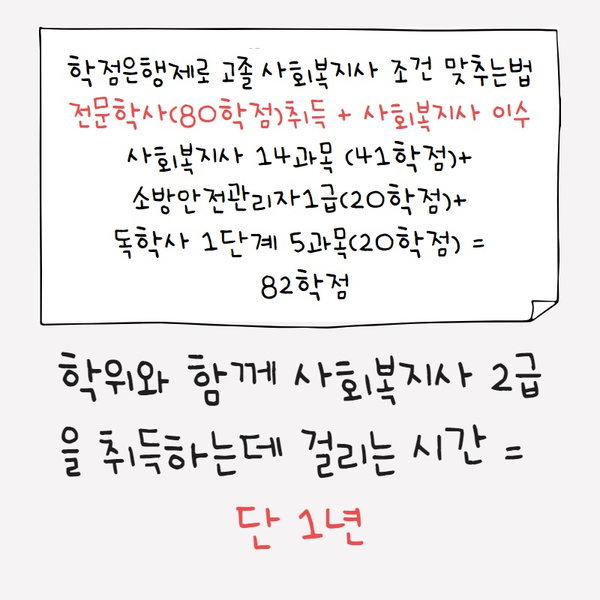 학점은행제로 고졸 사회복지사 조건 맞추는법
전문학사(80학점)취득 + 사회복지사 이수
사회복지사 14과목 (41학점)+
소방안전관리자1급(20학점)+
독학사 1단계 5과목(20학점) =
82학점
학위와 함께 사회복지사 2급
을 취득하는데 걸리는 시간 =
단 1년